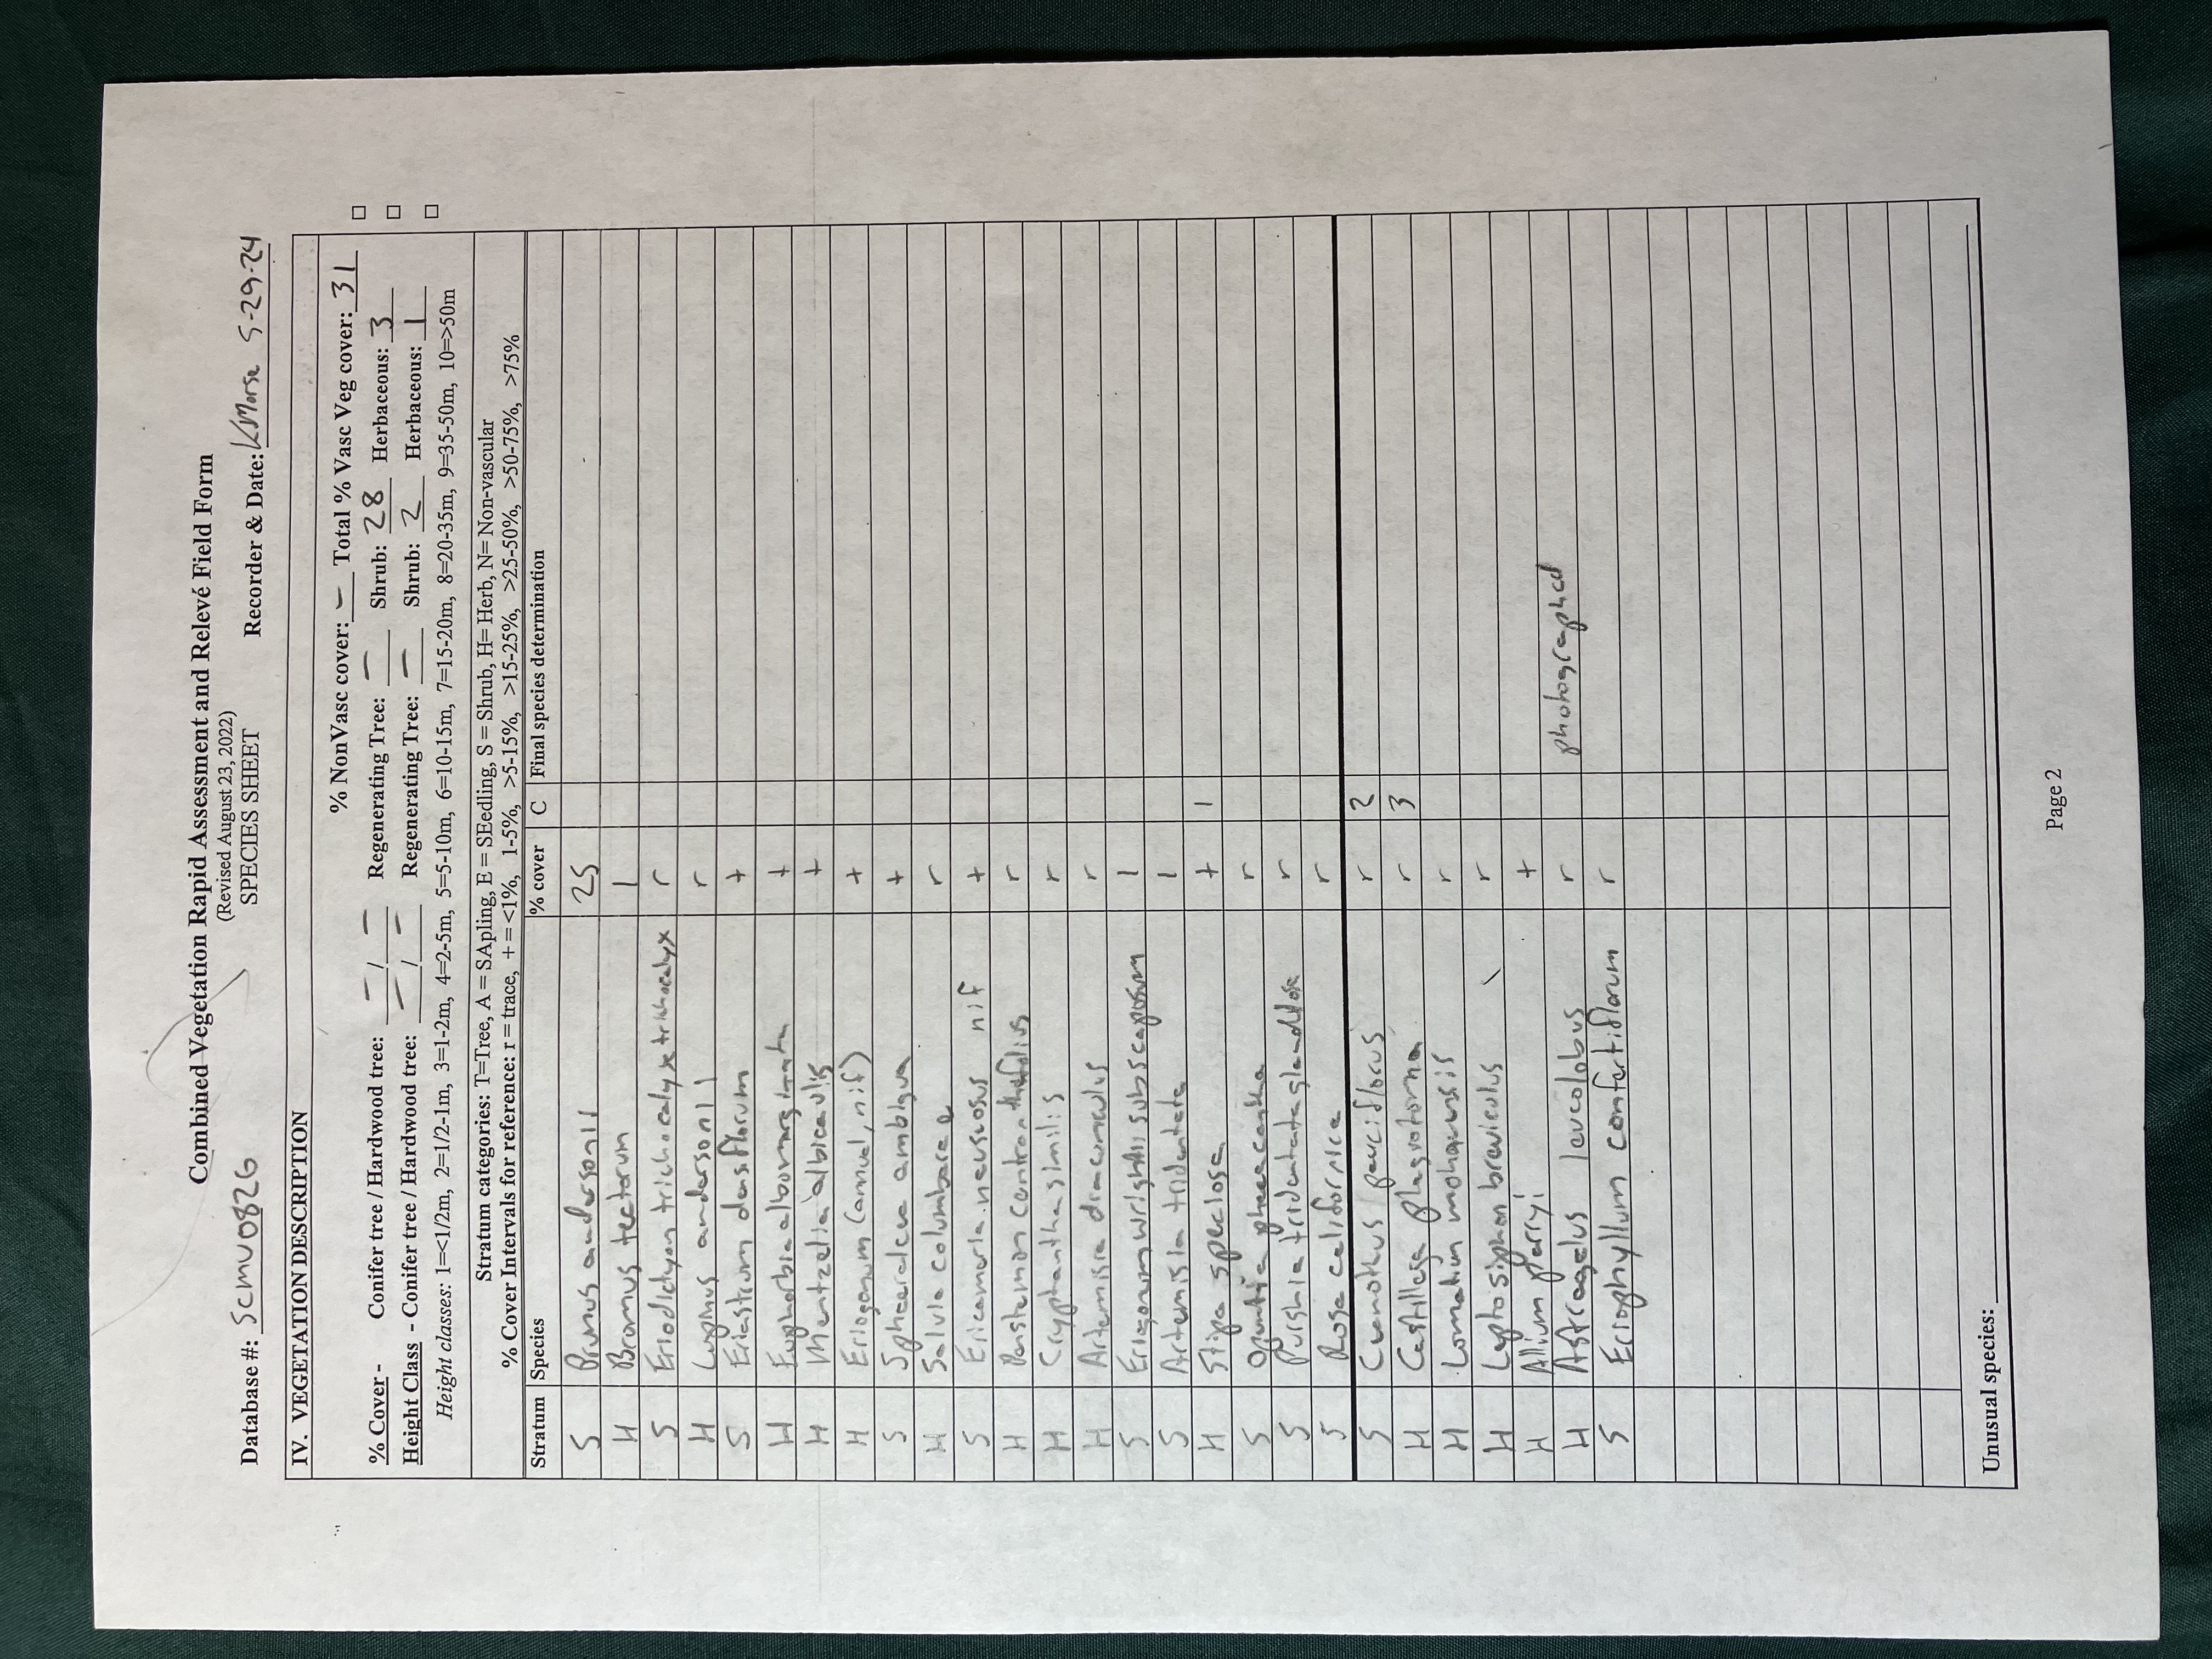 Combined Vegetation Rapid Assessment and Relevé Field Form
(Revised August 23, 2022)
SPECIES SHEET
Database #: SCMV0826 Recorder & Date: KMorse 5-29-24
IV. VEGETATION DESCRIPTION
% NonVasc cover: – Total % Vasc Veg cover: 31 □
% Cover - Conifer tree / Hardwood tree: – / – Regenerating Tree: – Shrub: 28 Herbaceous: 3 □
Height Class - Conifer tree / Hardwood tree: – / – Regenerating Tree: – Shrub: 2 Herbaceous: 1 □
Height classes: 1=<1/2m, 2=1/2-1m, 3=1-2m, 4=2-5m, 5=5-10m, 6=10-15m, 7=15-20m, 8=20-35m, 9=35-50m, 10=>50m
Stratum categories: T=Tree, A = SApling, E = SEedling, S = Shrub, H= Herb, N= Non-vascular
% Cover Intervals for reference: r = trace, + = <1%, 1-5%, >5-15%, >15-25%, >25-50%, >50-75%, >75%
Stratum Species % cover C Final species determination
S Prunus andersonii 25
H Bromus tectorum 1
S Eriodictyon trichocalyx trichocalyx r
H Lupinus andersonii r
S Eriastrum densiflorum +
H Euphorbia albomarginata +
H Mentzelia albicaulis +
H Eriogonum (annual, nif) +
S Sphaeralcea ambigua +
H Salvia columbarae r
S Ericameria nauseosus nif +
H Penstemon centranthifolius r
H Cryptantha similis r
H Artemisia dracunculus r
S Eriogonum wrightii subscaposum 1
S Artemisia tridentata 1
H Stipa speciosa + 1
S Opuntia phaeacantha r
S Purshia tridentata glandulosa r
S Rosa californica r
S Ceanothus pauciflorus r 2
H Castilleja plagiotoma r 3
H Lomatium mohavensis r
H Leptosiphon breviculus r
H Allium parryi +
H Astragalus leucolobus r photographed
S Eriophyllum confertiflorum r
Unusual species:
Page 2